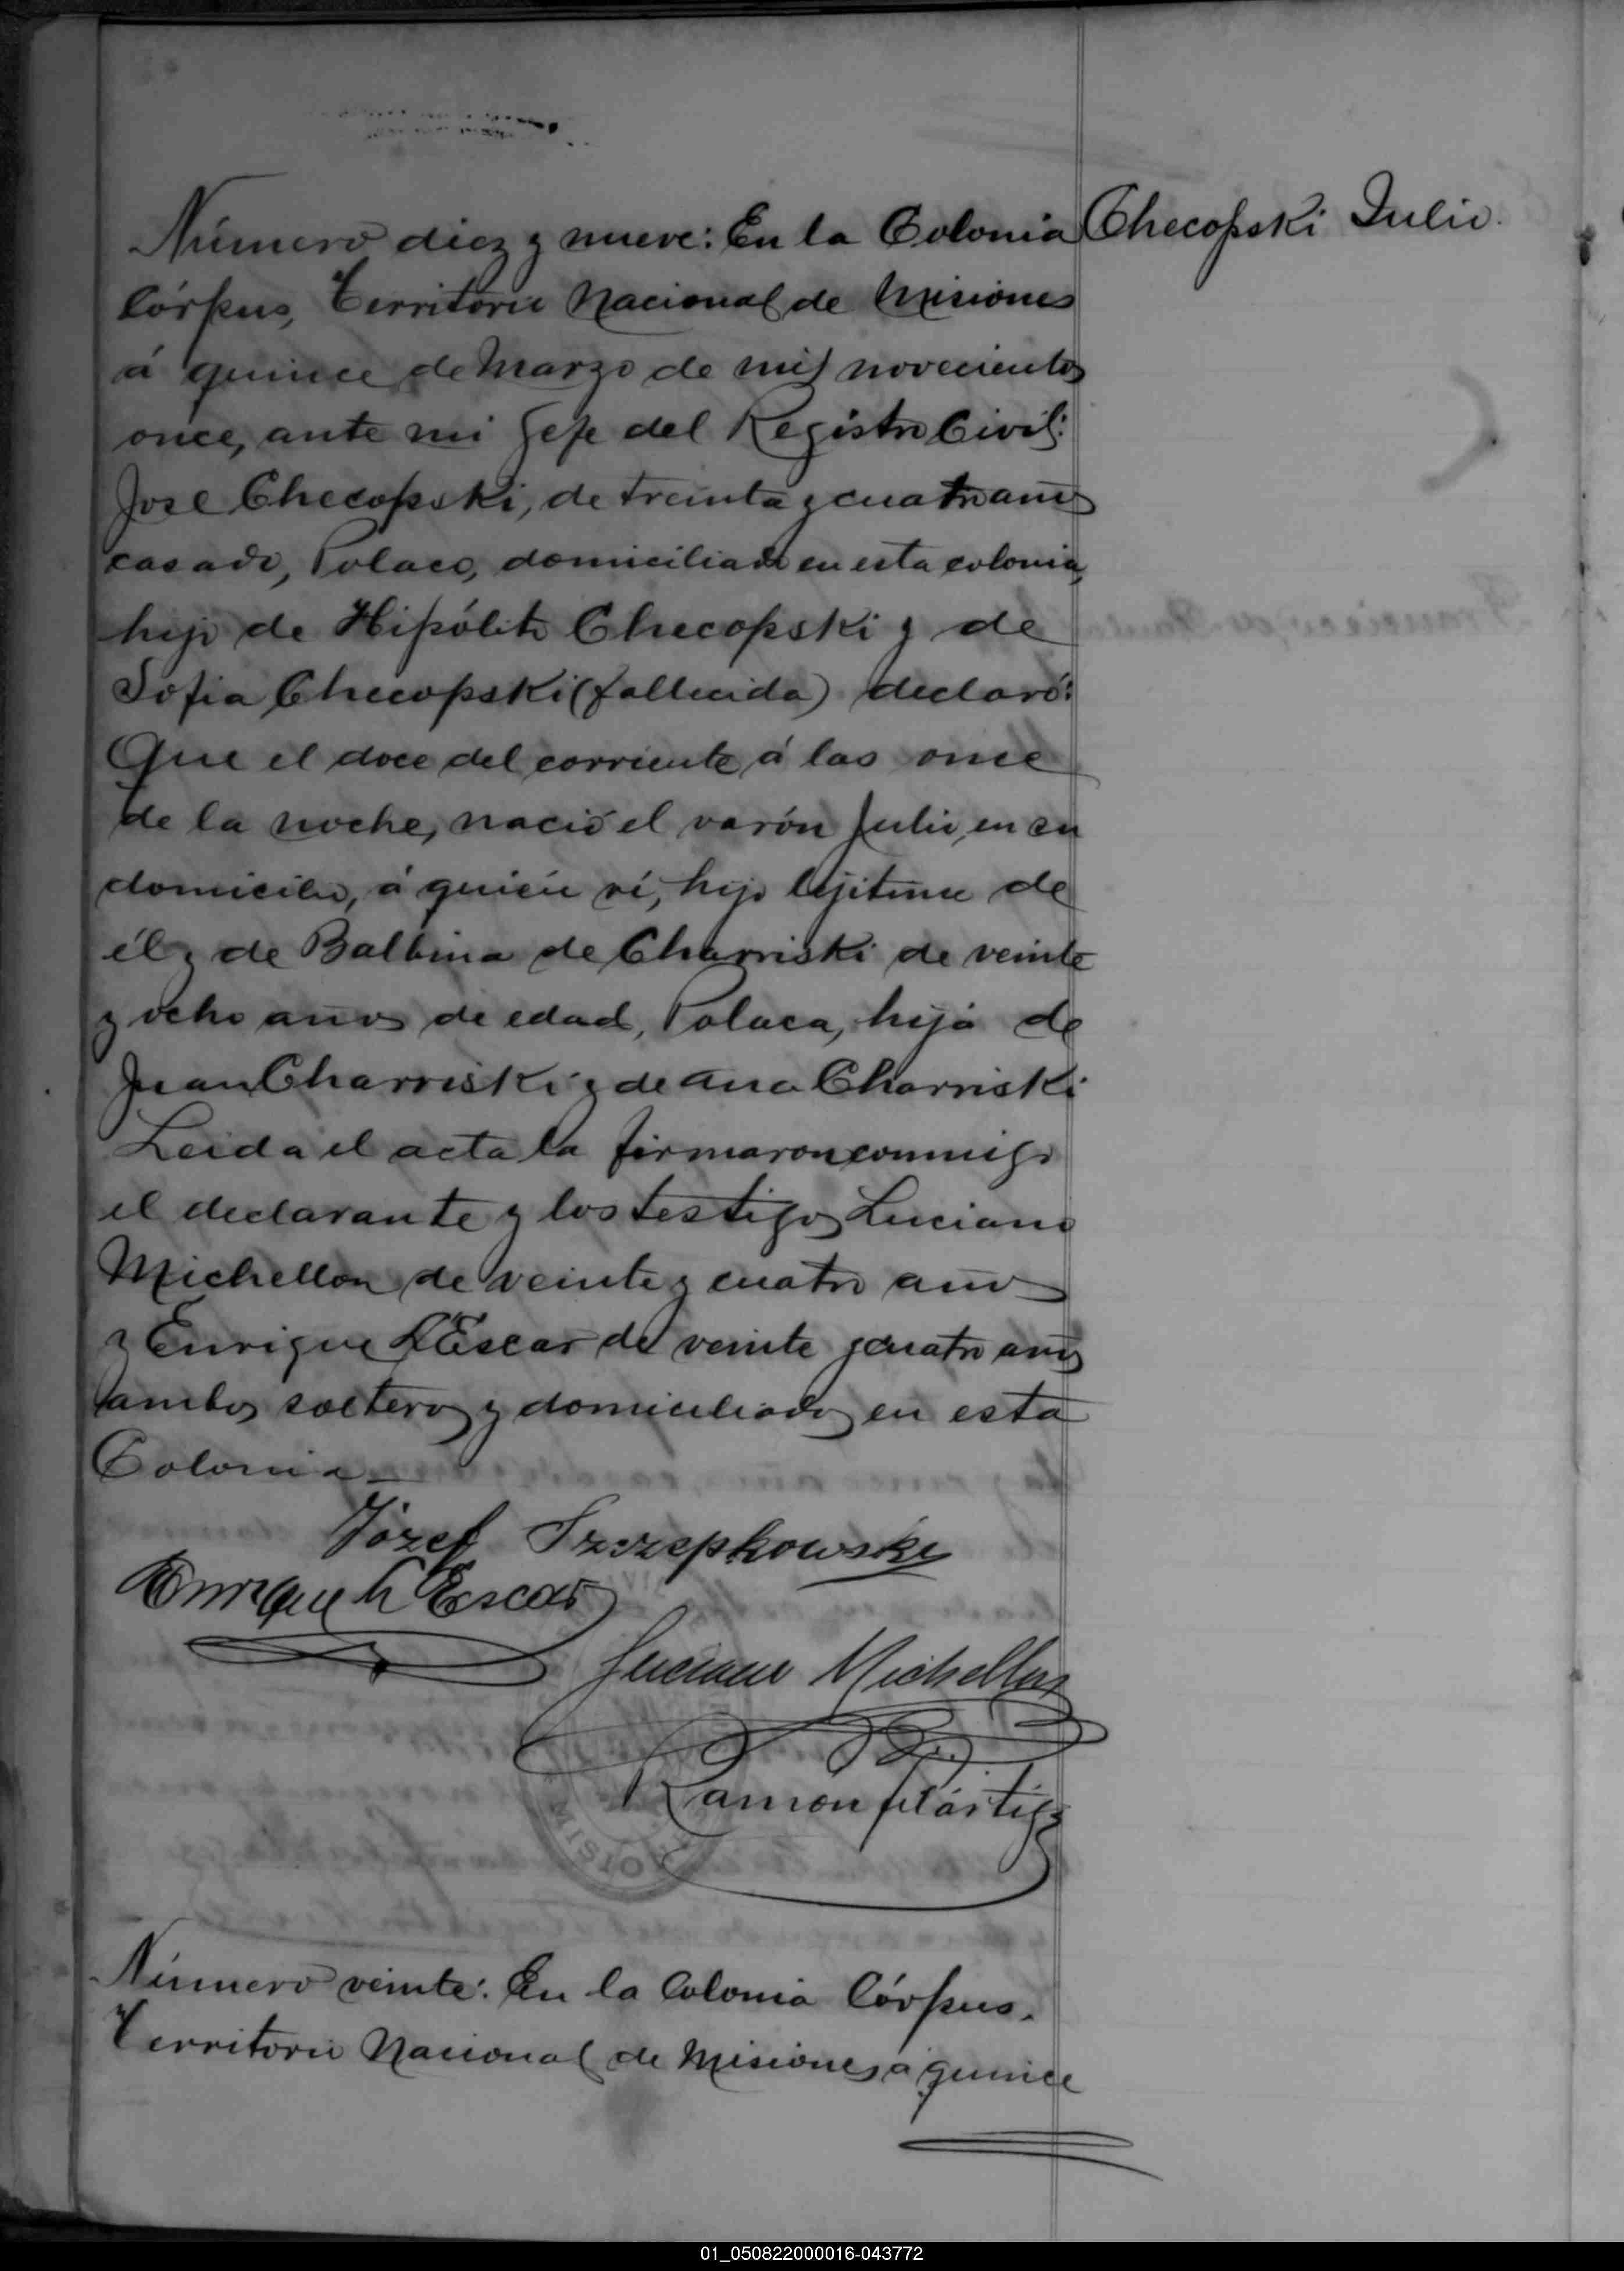 Número diez y nueve: En la Colonia
Checopski Julio.
Córpus, Territorio Nacional de Misiones
á quince de Marzo de mil novecientos
once, ante mi Jefe del Registro Civil:
José Checopski, de treinta y cuatro años
casado, Polaco, domiciliado en esta colonia,
hijo de Hipólito Checopski y de
Sofia Checopski (fallecida) declaró:
Que el doce del corriente á las once
de la noche, nació el varón Julio, en su
domicilio, á quién ví, hijo lejitimo de
él y de Balbina de Charriski de veinte
y ocho años de edad, Polaca, hija de
Juan Charriski y de Ana Charriski
Leida el acta la firmaron conmigo
el declarante y los testigos Luciano
Michellon de veinte y cuatro años
y Enrique L'Escar de veinte y cuatro años
ambos solteros y domiciliados en esta
Colonia
Józef Szczepkowski
Enrique L'Escar
Luciano Michellon
Ramón
MISIO
Número veinte: En la Colonia Córpus.
Territorio Nacional de Misiones á quince
01_050822000016-043772